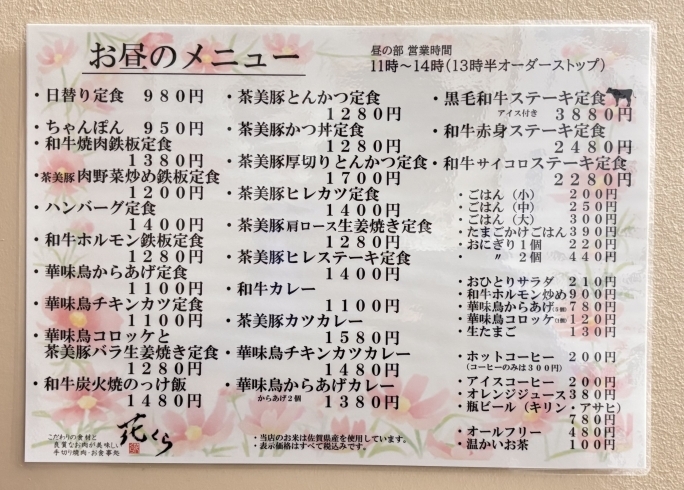 お昼のメニュー
昼の部 営業時間
11時～14時(13時半オーダーストップ)
・日替り定食 980円
・ちゃんぽん 950円
・和牛焼肉鉄板定食
1380円
・茶美豚肉野菜炒め鉄板定食
1200円
・ハンバーグ定食
1400円
・和牛ホルモン鉄板定食
1280円
・華味鳥からあげ定食
1100円
・華味鳥チキンカツ定食
1100円
・華味鳥コロッケと
茶美豚バラ生姜焼き定食
1280円
・和牛炭火焼のっけ飯
1480円
こだわりの食材と
良質なお肉が美味しい
手切り焼肉・お食事処
花くら
・茶美豚とんかつ定食
1280円
・茶美豚かつ丼定食
1280円
・茶美豚厚切りとんかつ定食
1700円
・茶美豚ヒレカツ定食
1400円
・茶美豚肩ロース生姜焼き定食
1280円
・茶美豚ヒレステーキ定食
1400円
・和牛カレー
1100円
・茶美豚カツカレー
1580円
・華味鳥チキンカツカレー
1480円
・華味鳥からあげカレー
からあげ2個 1380円
・当店のお米は佐賀県産を使用しています。
・表示価格はすべて税込みです。
・黒毛和牛ステーキ定食
アイス付き 3880円
・和牛赤身ステーキ定食
2480円
・和牛サイコロステーキ定食
2280円
・ごはん（小） 200円
・ごはん（中） 250円
・ごはん（大） 300円
・たまごかけごはん390円
・おにぎり1個 220円
・ 〃 2個 440円
・おひとりサラダ 210円
・和牛ホルモン炒め900円
・華味鳥からあげ(5個)780円
・華味鳥コロッケ(1個)120円
・生たまご 130円
・ホットコーヒー 200円
(コーヒーのみは300円)
・アイスコーヒー 200円
・オレンジジュース380円
・瓶ビール（キリン・アサヒ）
780円
・オールフリー 480円
・温かいお茶 100円